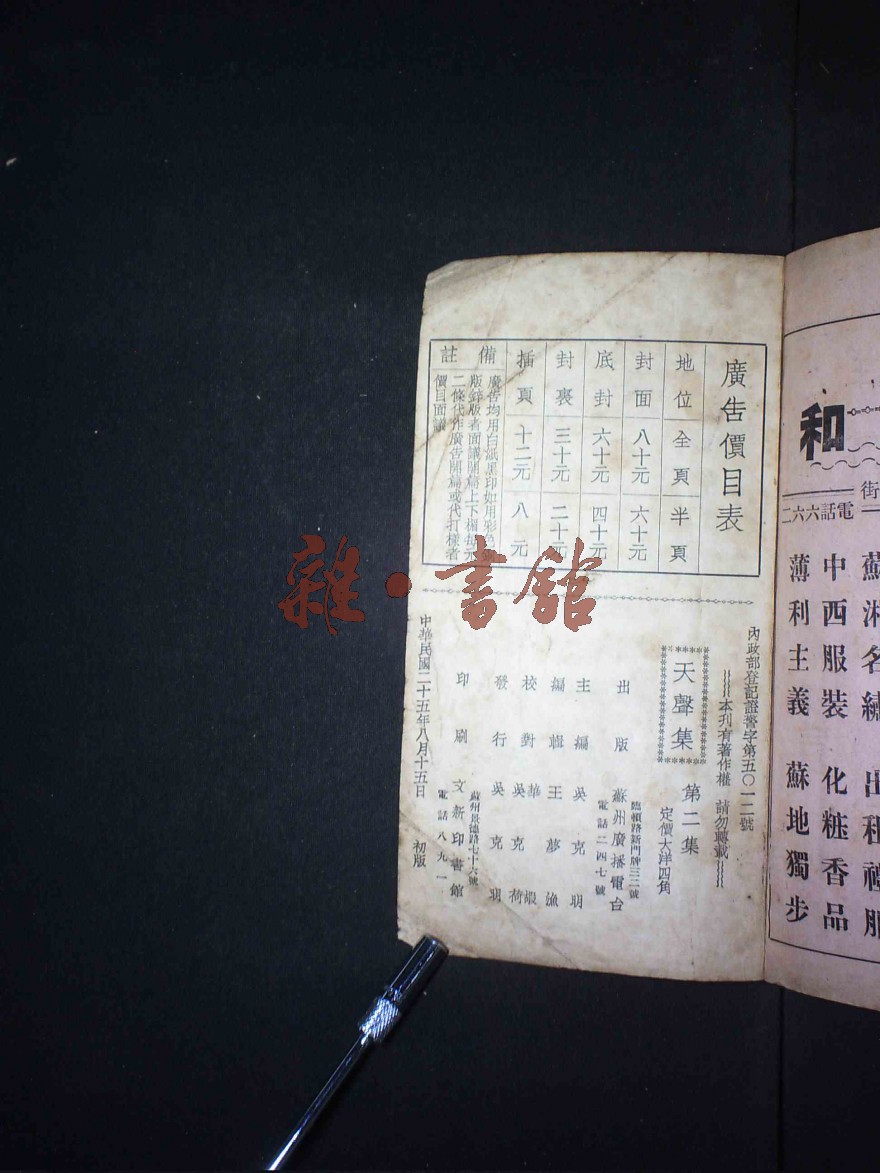 廣告價目表
地位 全頁 半頁
封面 八十元 六十元
底封 六十元 四十元
封裏 三十元 二十元
插頁 十二元 八元
備註
廣告均用白紙黑印如用彩色
版鋅版者面議開篇上下欄每元
二條代作廣告開篇或代打樣者
價目面議
內政部登記證警字第五〇一二號
本刊有著作權 請勿轉載
天聲集 第二集
定價大洋四角
臨頓路新門牌三二號
出版 蘇州廣播電台
電話二四七號
主編 吳克明
編輯 王夢漁
校對 華蝦
吳克荷
發行 吳克明
蘇州景德路七十六號
印刷 文新印書館
電話八九一
中華民國二十五年八月十五日 初版
雜·書館
和
街
電話六六二
蘇湘名繡 出租禮服
中西服裝 化粧香品
薄利主義 蘇地獨步